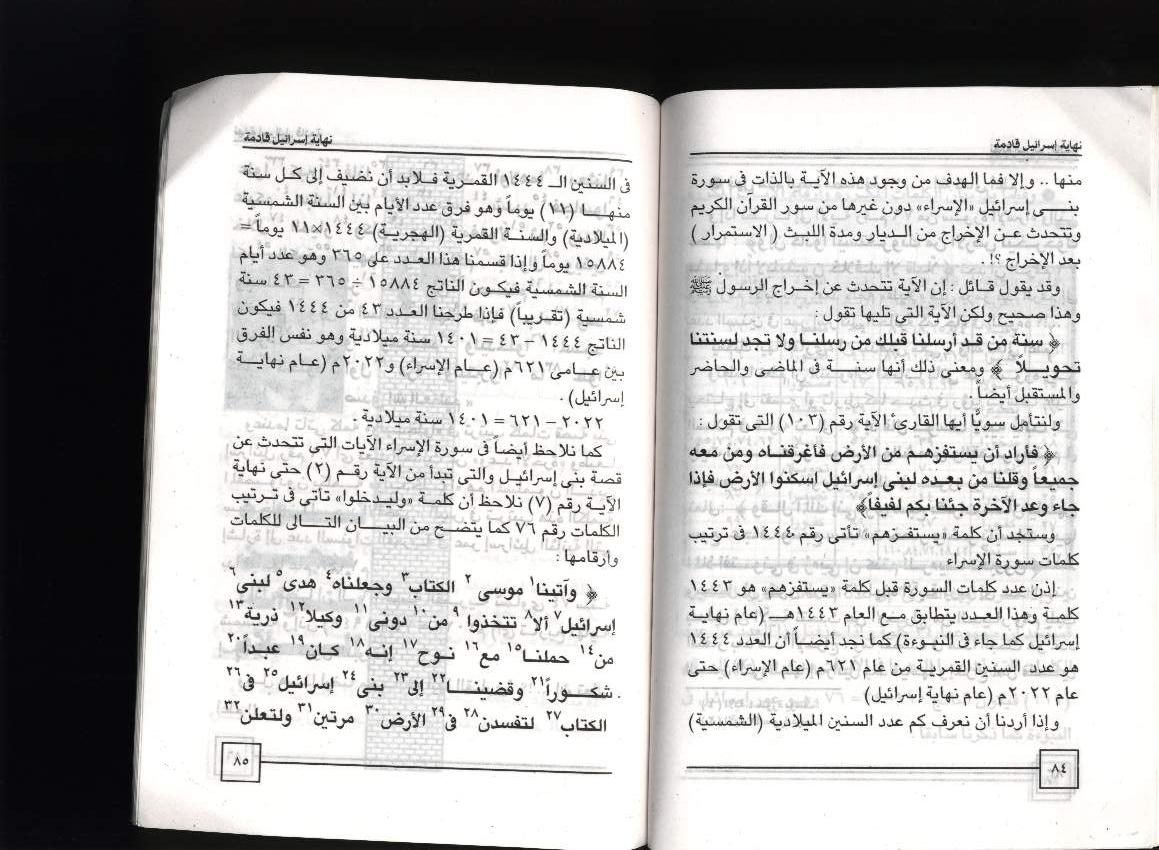 نهاية إسرائيل قادمة
منها .. وإلا فما الهدف من وجود هذه الآية بالذات فى سورة
بنــى إسرائيل «الإسراء» دون غيرها من سور القرآن الكريم
وتتحدث عـن الإخراج من الـديار ومدة اللبـث ( الاستمرار )
بعد الإخراج ؟! .
وقد يقول قـائل : إن الآية تتحدث عن إخـراج الرسول ﷺ
وهذا صحيح ولكن الآية التى تليها تقول :
﴿ سنة من قـد أرسلنا قبلك من رسلنـا ولا تجد لسنتنا
تحويـلاً ﴾ ومعنى ذلك أنها سنـة فى الماضى والحاضر
والمستقبل أيضاً .
ولنتأمل سويًّا أيها القارئ الآية رقم (١٠٣) التى تقول :
﴿ فأراد أن يستفزهـم من الأرض فأغرقنـاه ومن معه
جميعاً وقلنا من بعـده لبنى إسرائيل اسكنوا الأرض فإذا
جاء وعد الآخرة جئنا بكم لفيفاً﴾
وستجد أن كلمة «يستفزهم» تأتى رقم ١٤٤٤ فى ترتيب
كلمات سورة الإسراء
إذن عدد كلمات السورة قبل كلمة «يستفزهم» هو ١٤٤٣
كلمة وهذا العدد يتطابق مع العام ١٤٤٣هـ (عام نهاية
إسرائيل كما جاء فى النبوءة) كما نجد أيضـاً أن العدد ١٤٤٤
هو عدد السنين القمرية من عام ٦٢١م (عام الإسراء) حتى
عام ٢٠٢٢م (عام نهاية إسرائيل)
وإذا أردنا أن نعرف كم عدد السنين الميلادية (الشمسية)
٨٤
نهاية إسرائيل قادمة
فى السنين الـ ١٤٤٤ القمرية فـلابد أن نضيف إلى كـل سنة
منهــا (١١) يوماً وهو فرق عدد الأيام بين السنة الشمسية
(الميلادية) والسنـة القمرية (الهجرية) ١٤٤٤×١١ يوماً =
١٥٨٨٤ يوماً وإذا قسمنا هذا العـدد على ٣٦٥ وهو عدد أيام
السنة الشمسية فيكـون الناتج ١٥٨٨٤ ÷ ٣٦٥ = ٤٣ سنة
شمسية (تقـريباً) فإذا طرحنا العدد ٤٣ من ١٤٤٤ فيكون
الناتج ١٤٤٤ – ٤٣ = ١٤٠١ سنة ميلادية وهو نفس الفرق
بين عـامى ٦٢١م (عـام الإسراء) و٢٠٢٢م (عـام نهايـة
إسرائيل) .
٢٠٢٢ – ٦٢١ = ١٤٠١ سنة ميلادية .
كما نلاحظ أيضاً فى سورة الإسراء الآيات التى تتحدث عن
قصة بنى إسرائيـل والتى تبدأ من الآية رقـم (٢) حتى نهاية
الآيـة رقم (٧) نلاحظ أن كلمـة «وليـدخلوا» تأتى فى ترتيب
الكلمات رقـم ٧٦ كما يتضـح من البيـان التـالى للكلمات
وأرقامها :
﴿ وآتينا١ موسى٢ الكتاب٣ وجعلناه٤ هدى٥ لبنى٦
إسرائيل٧ ألا٨ تتخذوا٩ من١٠ دونى١١ وكيلا١٢ ذرية١٣
من١٤ حملنـا١٥ مع١٦ نوح١٧ إنه١٨ كان١٩ عبداً٢٠
شكــوراً٢١ وقضينــا٢٢ إلى٢٣ بنى٢٤ إسرائيل٢٥ فى٢٦
الكتاب٢٧ لتفسدن٢٨ فى٢٩ الأرض٣٠ مرتين٣١ ولتعلن٣٢
٨٥